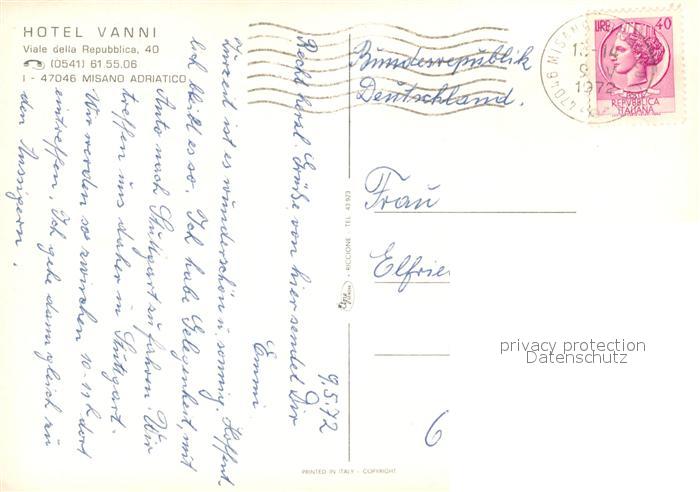 HOTEL VANNI
Viale della Repubblica, 40
(0541) 61.55.06
I - 47046 MISANO ADRIATICO
9.5.72
Recht herzl. Grüße von hier sendet Dir
Emmi
Zurzeit ist es wunderschön u. sonnig. Hoffent-
lich bleibt es so. Ich habe Gelegenheit, mit
Auto nach Stuttgart zu fahren. Wir
treffen uns daher in Stuttgart.
Wir werden so zwischen 10-11h dort
eintreffen. Ich gehe dann gleich zu
den
Bundesrepublik
Deutschland.
Frau
Elfrie
6
47046 MISANO
1972
LIRE 40
POSTE
REPVBBLICA
ITALIANA
RICCIONE - TEL. 43923
PRINTED IN ITALY - COPYRIGHT
privacy protection
Datenschutz